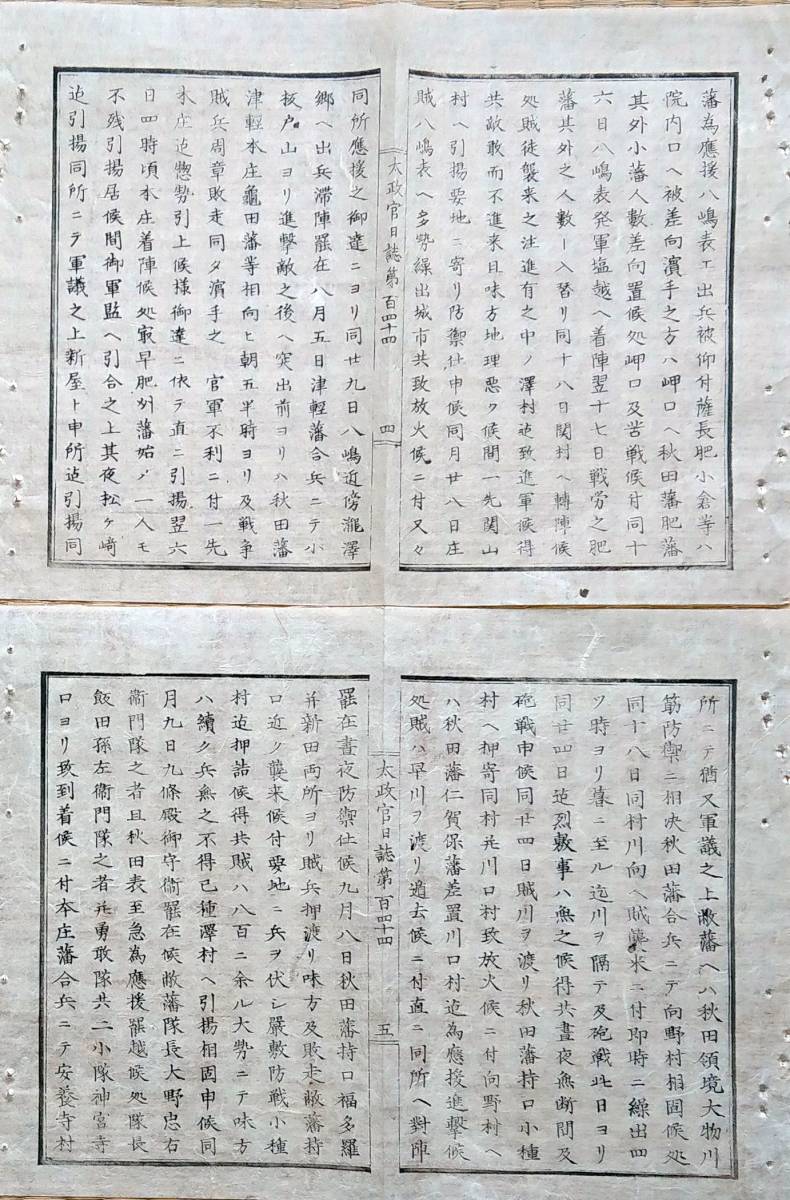 藩為應援八嶋表エ出兵被仰付薩長肥小倉等ハ
院内口ヘ被差向濱手之方ハ岬口ヘ秋田藩肥藩
其外小藩人數差向置候処岬口及苦戦候付同十
六日八嶋表発軍塩越ヘ着陣翌十七日戦労之肥
藩其外之人數ト入替リ同十八日関村ヘ轉陣候
処賊徒襲来之注進有之中ノ澤村迠致進軍候得
共敵敢而不進来且味方地理悪ク候間一先関山
村ヘ引揚要地ニ寄リ防禦仕申候同月廿八日庄
賊八嶋表ヘ多勢繰出城市共致放火候ニ付又々
太政官日誌第百四十四
四
同所應援之御達ニヨリ同廿九日八嶋近傍滝澤
郷ヘ出兵滞陣罷在八月五日津輕藩合兵ニテ小
板戸山ヨリ進撃敵之後ヘ突出前ヨリハ秋田藩
津輕本庄龜田藩等相向ヒ朝五半時ヨリ及戦争
賊兵周章敗走同夕濱手之　官軍不利ニ付一先
本庄迠惣勢引上候様御達ニ依テ直ニ引揚翌六
日四時頃本庄着陣候処最早肥州藩始メ一人モ
不残引揚居候間御軍監ヘ引合之上其夜松ヶ崎
迠引揚同所ニテ軍議之上新屋ト申所迠引揚同
所ニテ猶又軍議之上敝藩ヘハ秋田領境大物川
筋防禦ニ相决秋田藩合兵ニテ向野村相固候処
同十八日同村川向ヘ賊襲来ニ付即時ニ繰出四
ツ時ヨリ暮ニ至ル迠川ヲ隔テ及砲戦此日ヨリ
同廿四日迠烈敷事ハ無之候得共晝夜無断間及
砲戦申候同廿四日賊川ヲ渡リ秋田藩持口小種
村ヘ押寄同村并川口村致放火候ニ付向野村ヘ
ハ秋田藩仁賀保藩差置川口村迠為應援進撃候
処賊ハ早川ヲ渡リ遁去候ニ付直ニ同所ヘ對陣
太政官日誌第百四十四
五
罷在晝夜防禦仕候九月八日秋田藩持口福多羅
并新田両所ヨリ賊兵押渡リ味方及敗走敝藩持
口近ク襲来候付要地ニ兵ヲ伏シ嚴敷防戦小種
村迠押詰候得共賊ハ八百ニ余ル大勢ニテ味方
ハ續ク兵無之不得已種澤村ヘ引揚相固申候同
月九日九條殿御守衞罷在候敝藩隊長大野忠右
衞門隊之者且秋田表至急為應援罷越候処隊長
飯田孫左衞門隊之者并勇敢隊共二小隊神宮寺
口ヨリ致到着候ニ付本庄藩合兵ニテ安養寺村